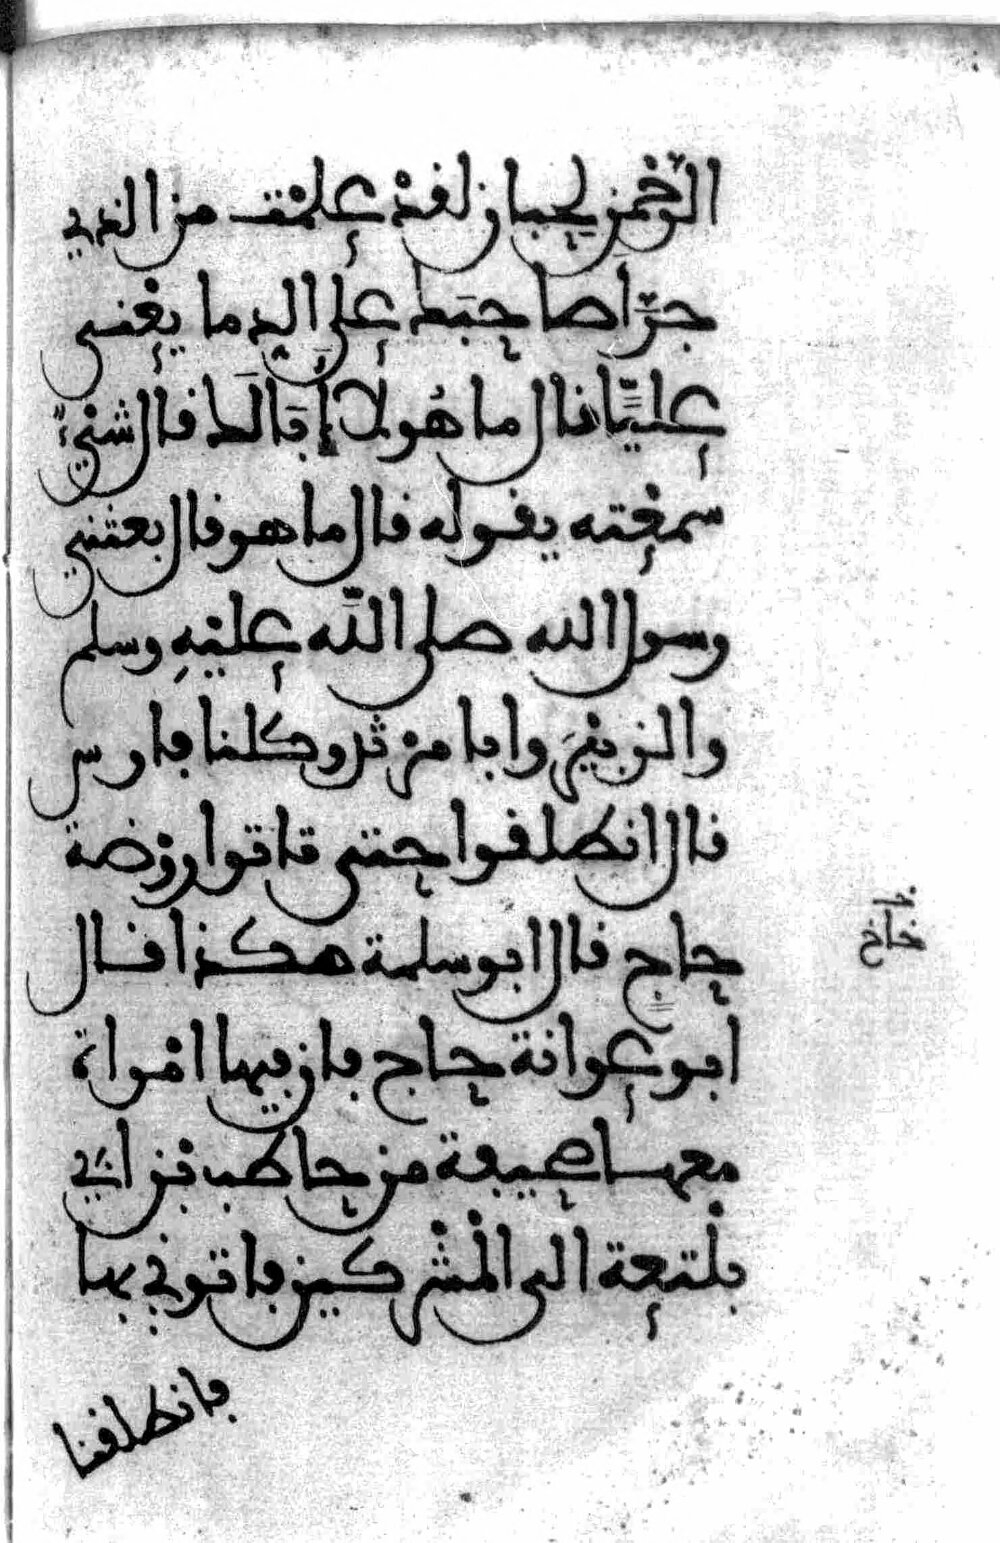 الرحمن لحبان لقد علمت من الذي
جرّأ صاحبك على الدما يعني
عليّا قال ما هو لا ابا لك قال شيء
سمعته يقوله قال ما هو قال بعثني
رسول الله صلى الله عليه وسلم
والزبير وابا مرثد وكلنا فارس
قال انطلقوا حتى تاتوا روضة
حاج قال ابو سلمة هكذا قال
ابو عوانة حاج فان فيها امراة
معها صحيفة من حاطب بن ابي
بلتعة الى المشركين فاتوني بها
فانطلقنا
خاخ